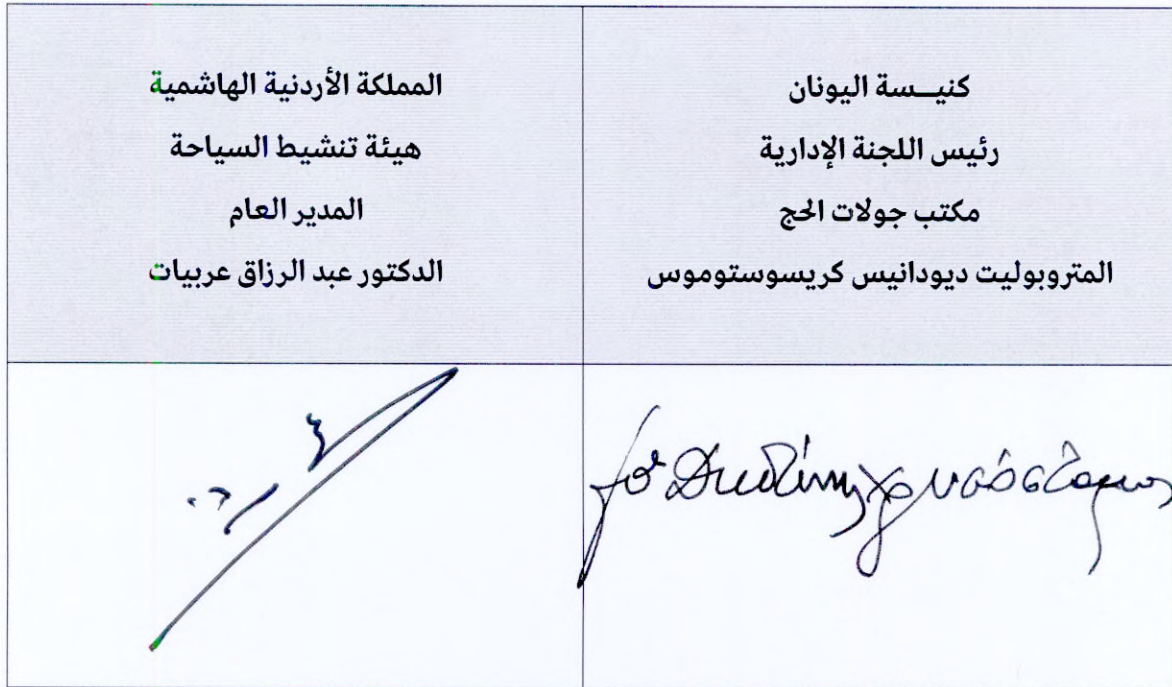 كنيــسة اليونان
رئيس اللجنة الإدارية
مكتب جولات الحج
المتروبوليت ديودانيس كريسوستوموس
المملكة الأردنية الهاشمية
هيئة تنشيط السياحة
المدير العام
الدكتور عبد الرزاق عربيات